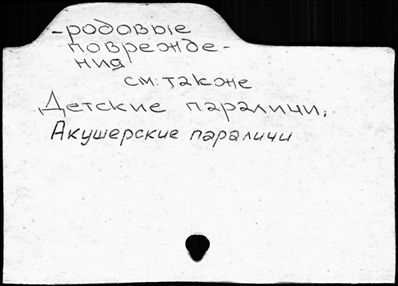 -родовые
поврежде-
ния
см. также
Детские параличи,
Акушерские параличи